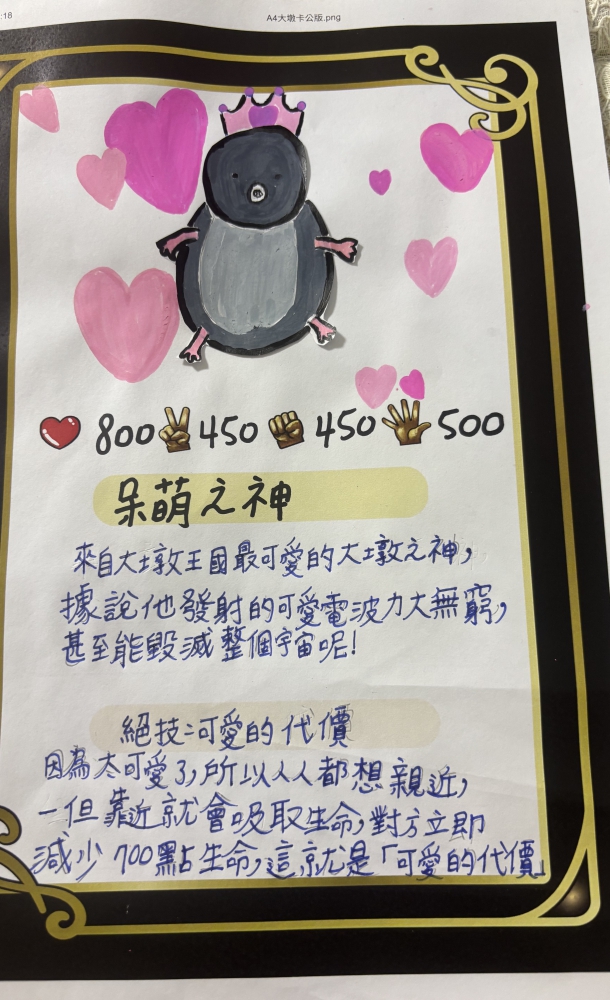 :18
A4大墩卡公版.png
800 450 450 500
呆萌之神
來自大墩王國最可愛的大墩之神,
據說他發射的可愛電波力大無窮,
甚至能毀滅整個宇宙呢!
絕技:可愛的代價
因為太可愛了,所以人人都想親近,
一但靠近就會吸取生命,對方立即
減少700點生命,這就是「可愛的代價」